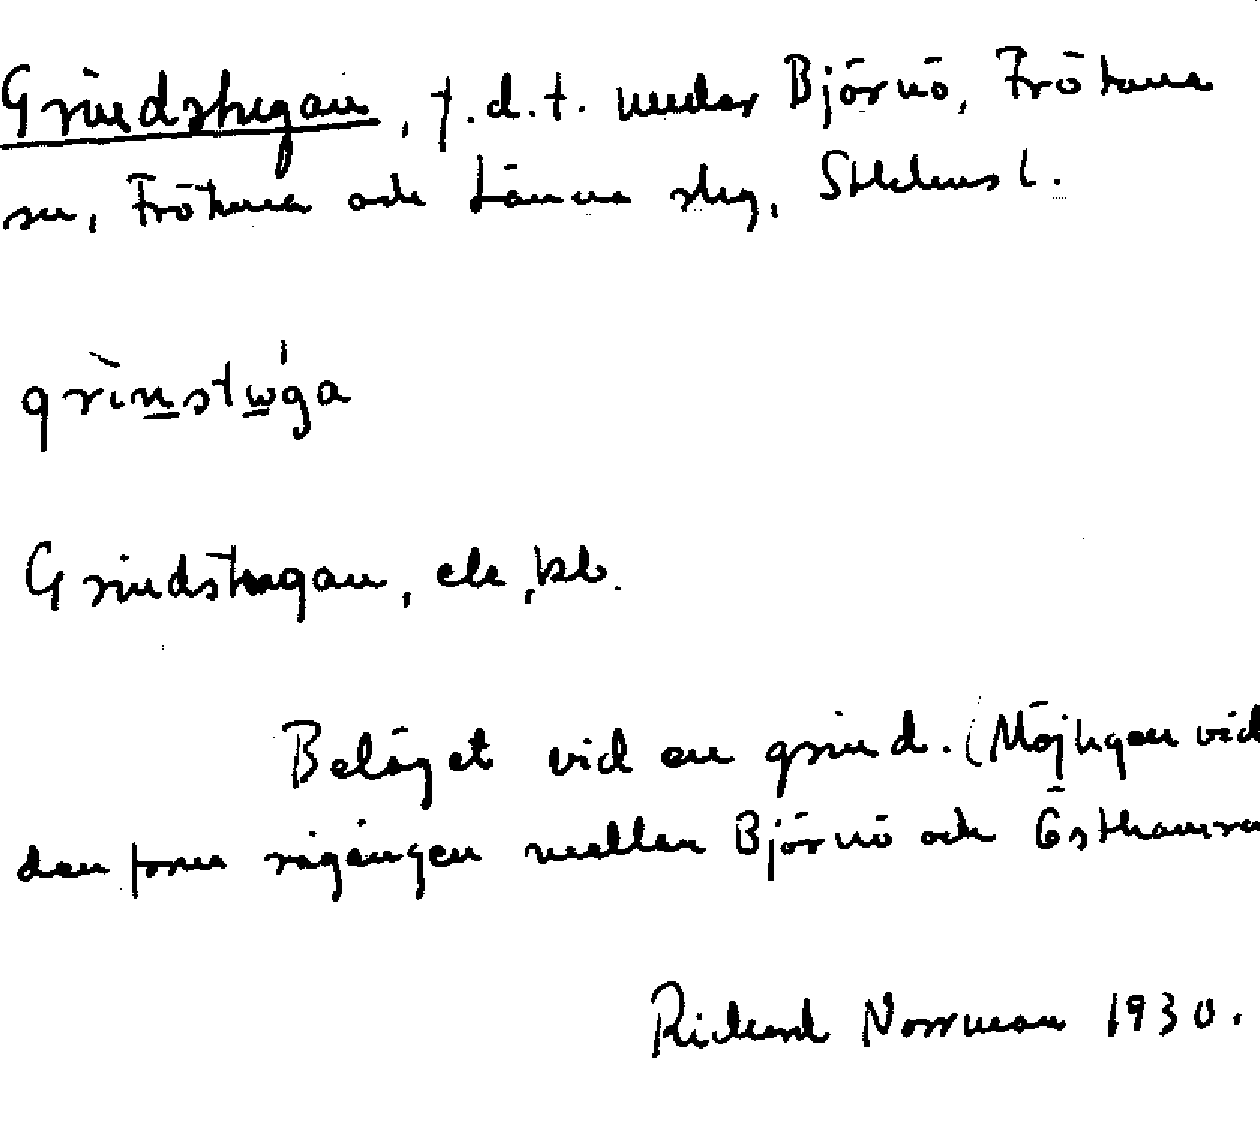 Grindstugan, f.d.t. under Björnö, Frötuna
sn, Frötuna och Länna skg, Sthlms l.
grinstwga
Grindstugan, ek, kb.
Beläget vid en grind. (Möjligen vid
den forna rågången mellan Björnö och Östhamra
Rickard Norrman 1930.